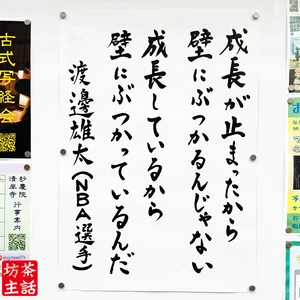 成長が止まったから
壁にぶつかるんじゃない
成長しているから
壁にぶつかっているんだ
渡邊雄太(NBA選手)
古式写経会
妙慶院
清岸寺
行事案内
坊主
茶話